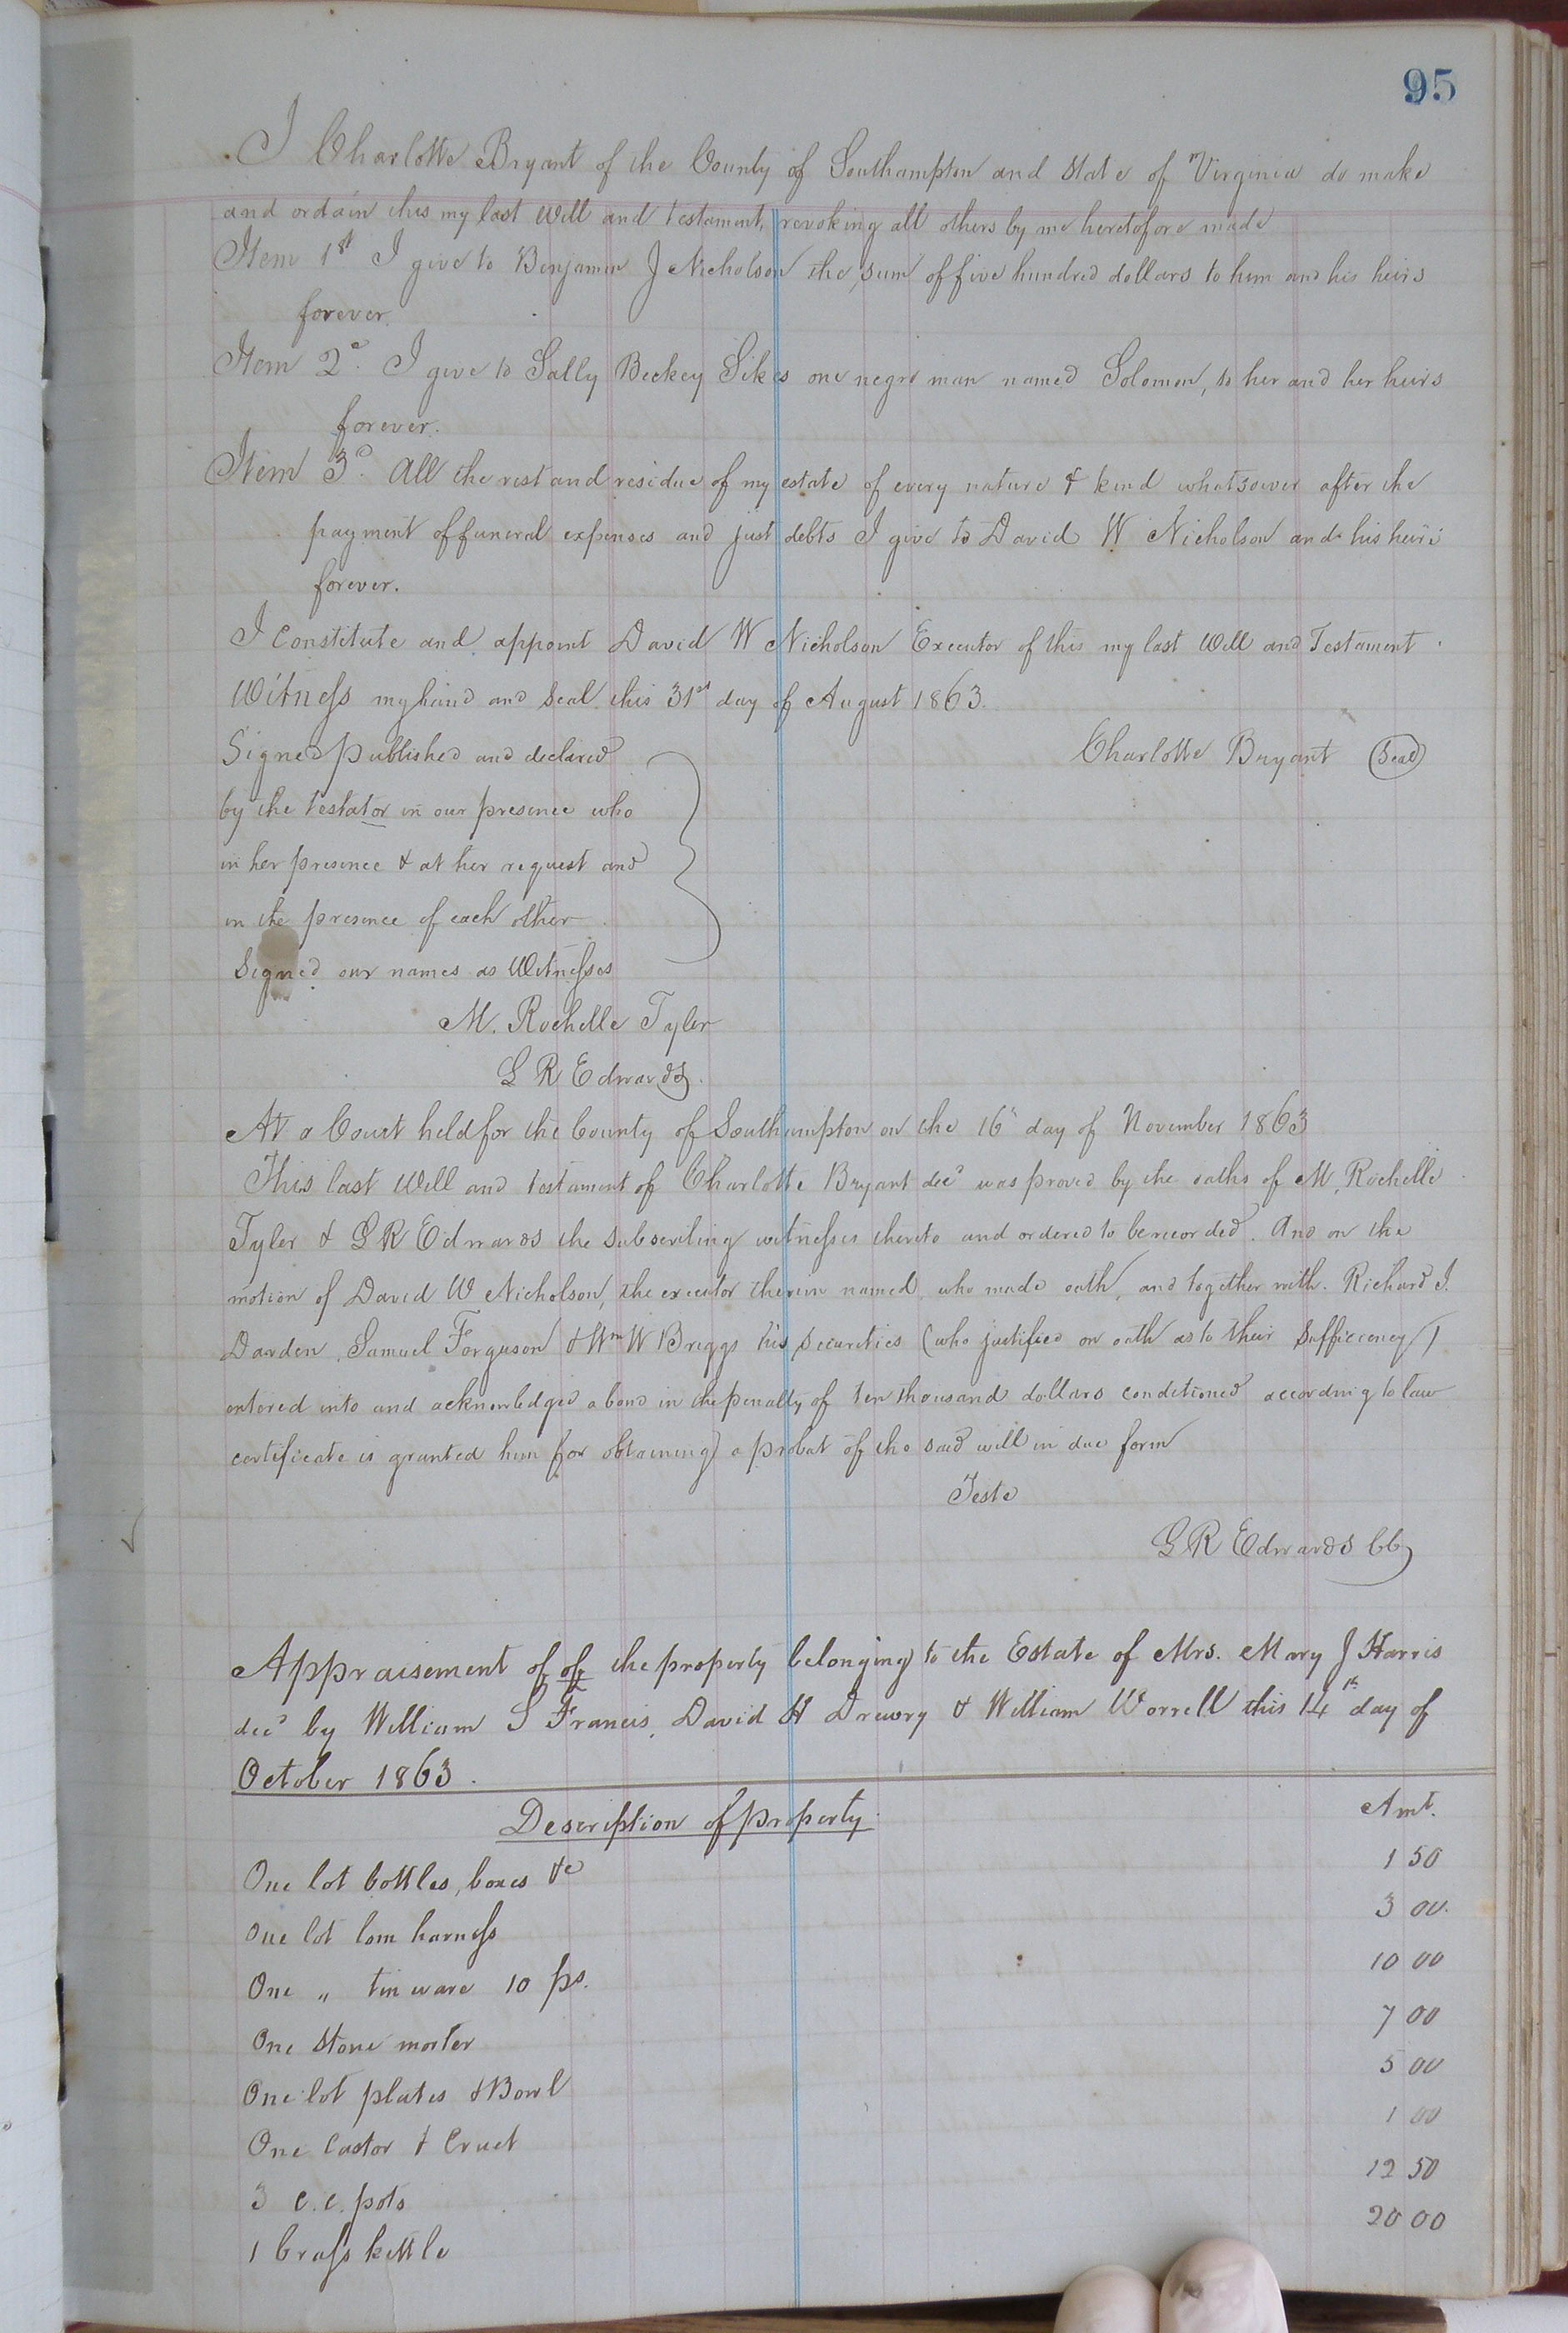 95
I Charlotte Bryant of the County of Southampton and State of Virginia do make
and ordain this my last Will and testament, revoking all others by me heretofore made
Item 1st I give to Benjamin J Nicholson the sum of five hundred dollars to him and his heirs
forever.
Item 2d. I give to Sally Beckey Sikes one negro man named Solomon, to her and her heirs
forever.
Item 3d. All the rest and residue of my estate of every nature & kind whatsoever after the
payment of funeral expenses and just debts I give to David W Nicholson and his heirs
forever.
I Constitute and appoint David W Nicholson Executor of this my last Will and Testament.
Witness my hand and seal this 31st day of August 1863.
Signed published and declared
Charlotte Bryant (Seal)
by the testator in our presence who
in her presence & at her request and
in the presence of each other
Signed our names as Witnesses
M. Rochelle Tyler
L R Edwards.
At a Court held for the County of Southampton on the 16" day of November 1863
This last Will and testament of Charlotte Bryant decd was proved by the oaths of M. Rochelle
Tyler & L R Edwards the subscribing witnesses thereto and ordered to be recorded. And on the
motion of David W Nicholson, the executor therein named, who made oath, and together with Richard I.
Darden, Samuel Ferguson & Wm W Briggs his securities (who justified on oath as to their sufficiency)
entered into and acknowledged a bond in the penalty of ten thousand dollars conditioned according to law
certificate is granted him for obtaining a probat of the said will in due form
Teste
L R Edwards CC
Appraisement of of the property belonging to the Estate of Mrs. Mary J Harris
decd by William S Francis, David H Drewry & William Worrell this 14th day of
October 1863.
Description of property. Amt.
One lot bottles, boxes &c 1 50
One lot lom harness 3 00.
One " tin ware 10 ps. 10 00
One Stone morter 7 00
One lot plates & Bowl 5 00
One Castor & Cruet 1 00
3 c.c. pots 12 50
1 brass kettle 20 00